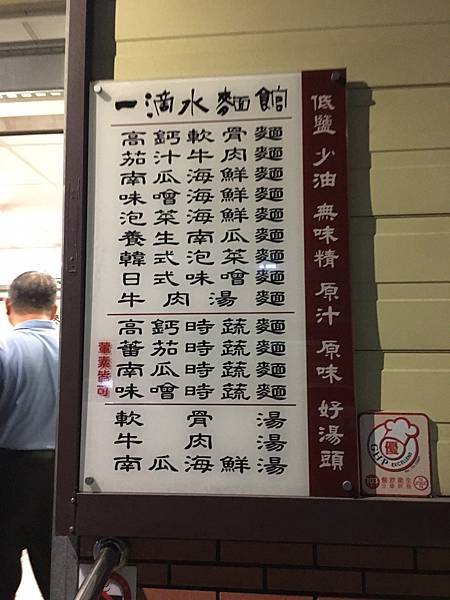 一滴水麵館
高鈣軟骨麵
茄汁牛肉麵
南瓜海鮮麵
味噌海鮮麵
泡菜海鮮麵
養生南瓜麵
韓式泡菜麵
日式味噌麵
牛肉湯麵
高鈣時蔬麵
蕃茄時蔬麵
南瓜時蔬麵
味噌時蔬麵
葷素皆可
軟骨湯
牛肉湯
南瓜海鮮湯
低鹽 少油 無味精 原汁 原味 好湯頭
優
GHP EXCELLENT
103